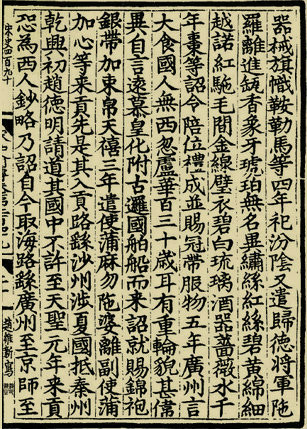 器械旗幟鞍勒馬等四年祀汾陰又遣歸德將軍陁
羅離進缻香象牙琥珀無名異繡絲紅絲碧黃綿細
越諾紅駞毛間金線壁衣碧白琉璃酒器薔薇水千
年棗等詔令陪位禮成並賜冠帶服物五年廣州言
大食國人無西忽盧華百三十歲耳有重輪貌甚偉
異自言遠慕皇化附古邏國舶船而來詔就賜錦袍
銀帶加束帛天禧三年遣使蒲麻勿陁婆離副使蒲
加心等來貢先是其入貢路繇沙州涉夏國抵秦州
乾興初趙德明請道其國中不許至天聖元年來貢
恐爲西人鈔略乃詔自今取海路繇廣州至京師至
宋史四百九十